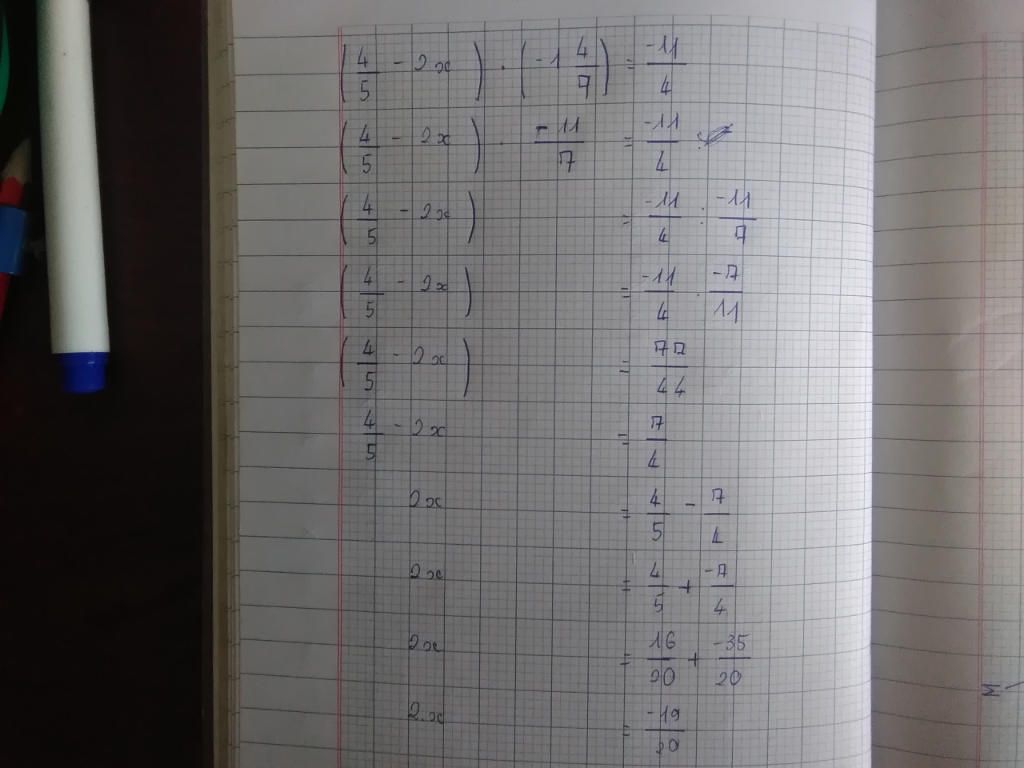 (4/5 - 2x) · (-1 4/7) = -11/4
(4/5 - 2x) · -11/7 = -11/4 :
(4/5 - 2x) = -11/4 : -11/7
(4/5 - 2x) = -11/4 · -7/11
(4/5 - 2x) = 77/44
4/5 - 2x = 7/4
2x = 4/5 - 7/4
2x = 4/5 + -7/4
2x = 16/20 + -35/20
2x = -19/20
M